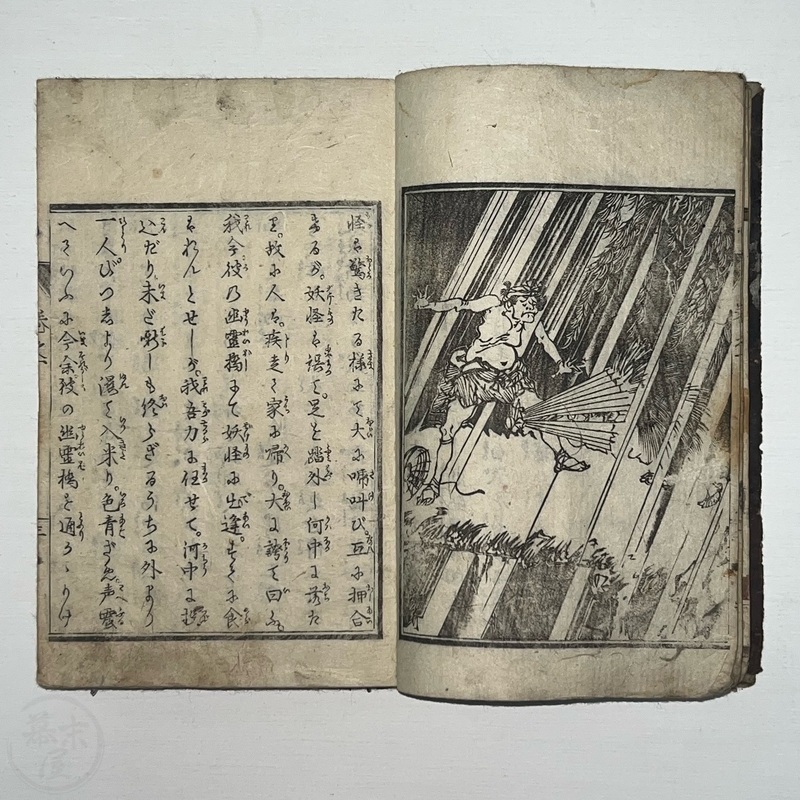 怪は驚きたる様にて大に啼叫び互に押合
けるが。妖怪は誤て。足を踏外し河中に落た
り。故に人は。疾走て家に帰り。大に誇て曰ふ。
我今彼の幽霊橋にて妖怪に出逢。すでに食
はれんとせしが。我吾力に任せて。河中に投
込だり。未だ噺しも終らざるうちに外より
一人びつしより濡て入来り。色青ざめ声震
へていふに今余彼の幽霊橋を通りかゝりけ
幕末屋